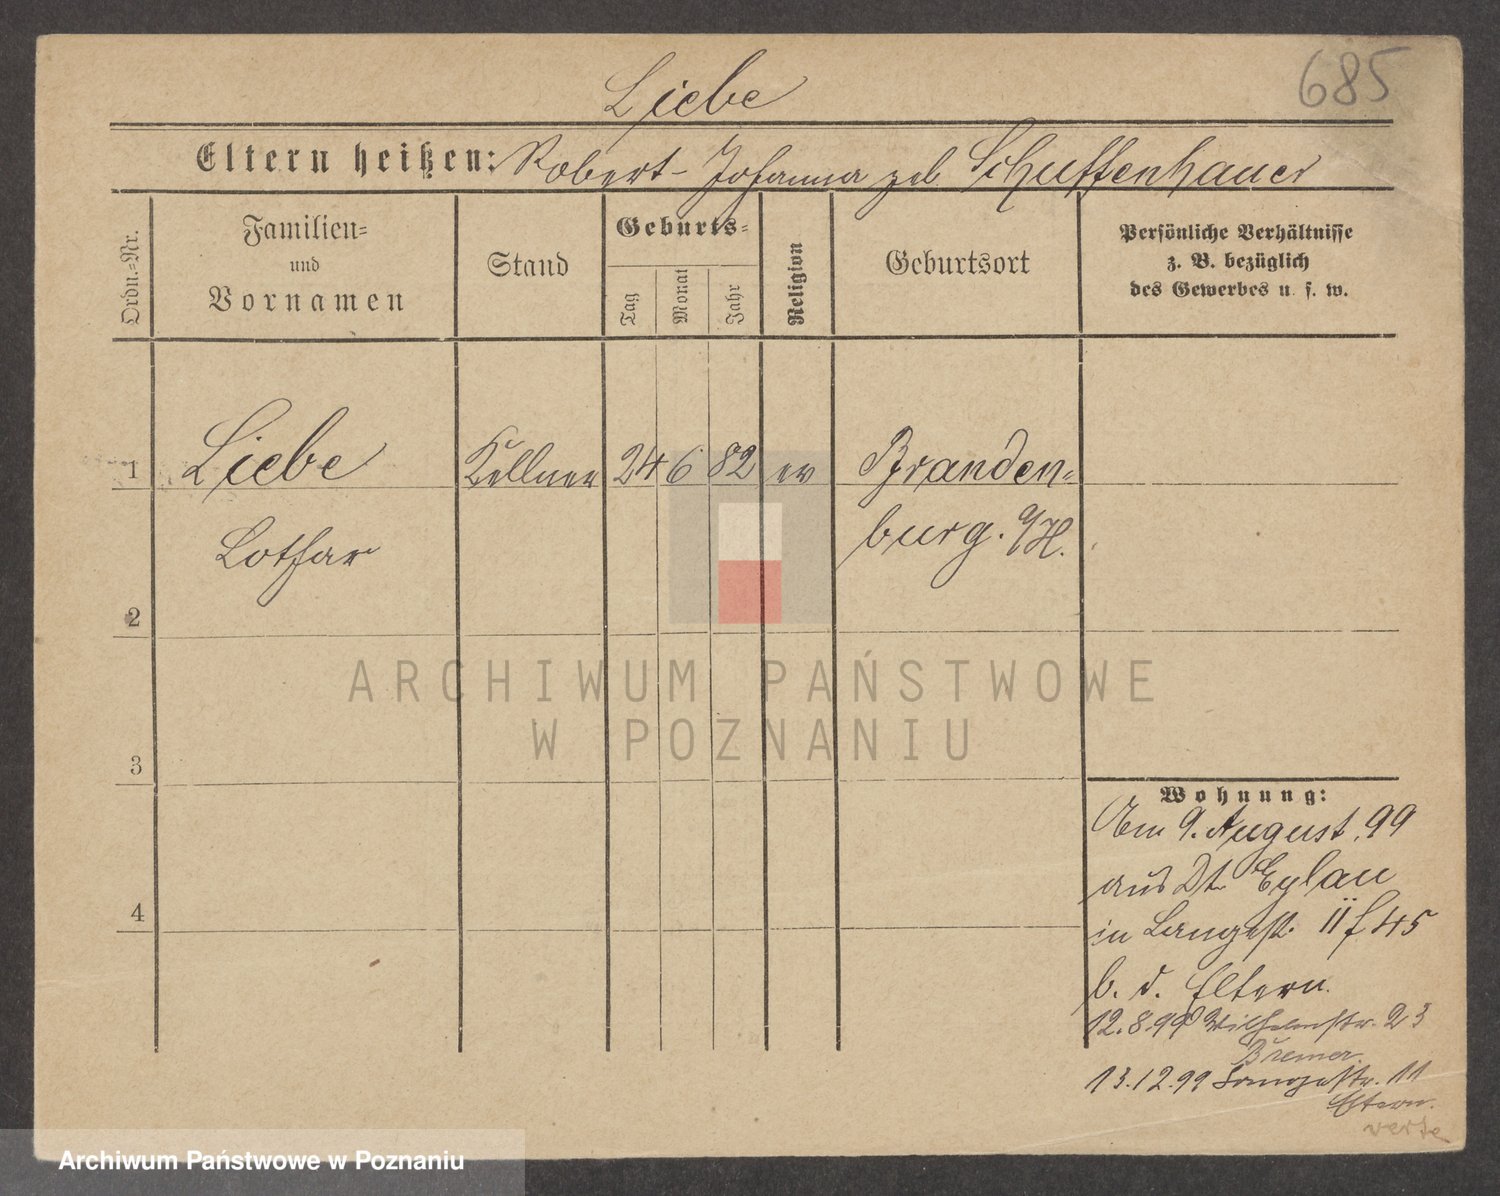 685
Liebe
Eltern heißen: Robert - Johanna geb Schuffenhauer
Ordn.-Nr.
Familien-
und
Vornamen
Stand
Geburts-
Tag
Monat
Jahr
Religion
Geburtsort
Persönliche Verhältnisse
z. B. bezüglich
des Gewerbes u. s. w.
1 Liebe Kellner 24 6 82 ev Branden-
Lothar burg. a/H.
2
ARCHIWUM PAŃSTWOWE
W POZNANIU
3
Wohnung:
Am 9. August. 99
aus Dt. Eylau
4
in Langest. 11 f 45
b. d. Eltern.
12.8.99 Wilhelmstr. 23
Bremer.
13.12.99 Langestr. 11
Eltern.
verte
Archiwum Państwowe w Poznaniu